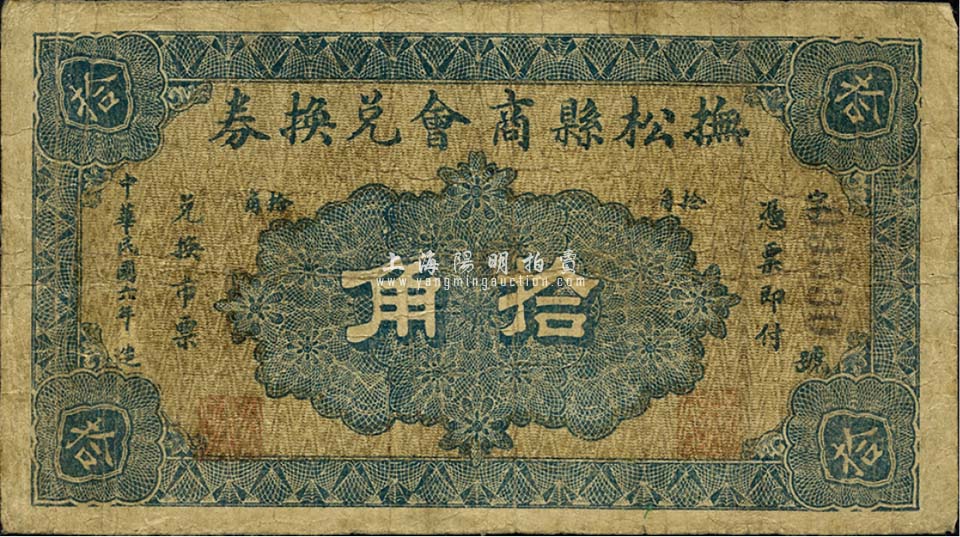 撫松縣商會兌換券
拾
拾
字
號
憑票即付
拾角
拾角
拾角
兌換市票
中華民國六年造
拾
拾
上海陽明拍賣
www.yangmingauction.com